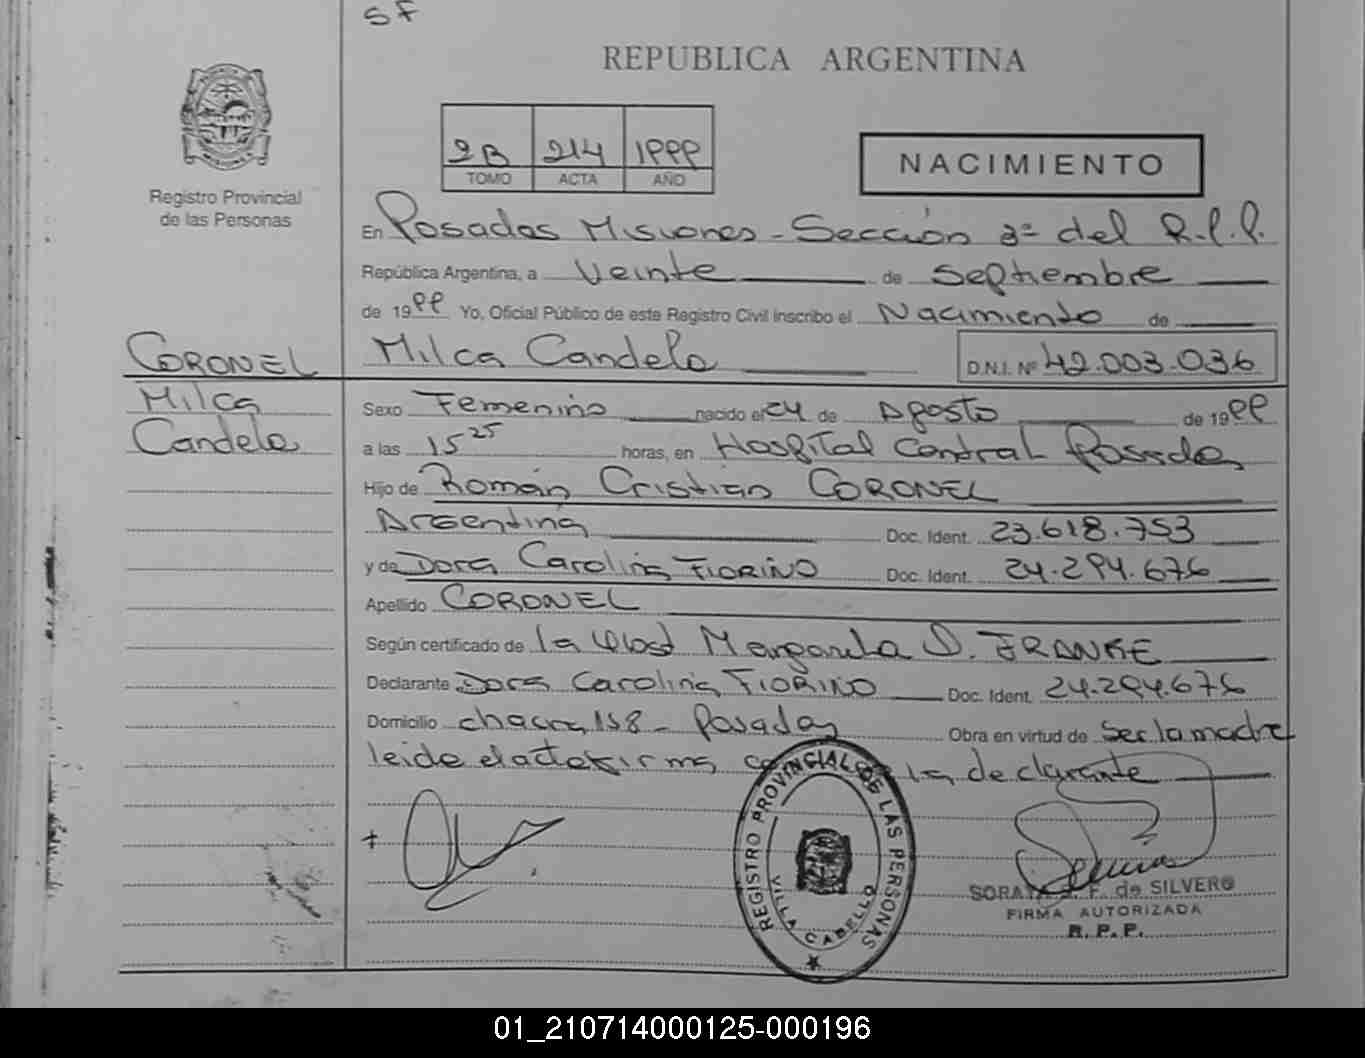 SF
REPUBLICA ARGENTINA
Registro Provincial
de las Personas
2B 214 1999
TOMO ACTA AÑO
NACIMIENTO
En Posadas Misiones - Sección 3ª del R.P.P.
República Argentina, a Veinte de Septiembre
de 1999 Yo, Oficial Público de este Registro Civil inscribo el Nacimiento de
Milca Candela D.N.I. Nº 42.003.036
CORONEL
Milca
Candela
Sexo Femenino nacido el 24 de Agosto de 1999
a las 15 25 horas, en Hospital Central Posadas
Hijo de Román Cristian CORONEL
Argentina Doc. Ident. 23.618.753
y de Dora Carolina FIORINO Doc. Ident. 24.294.676
Apellido CORONEL
Según certificado de la Obst Margarita FRANKE
Declarante Dora Carolina FIORINO Doc. Ident. 24.294.676
Domicilio chacra 158 - Posadas Obra en virtud de ser la madre
leida el acta firma la declarante
REGISTRO PROVINCIAL DE LAS PERSONAS
VILLA CABELLO
F. de SILVERO
FIRMA AUTORIZADA
R.P.P.
01_210714000125-000196